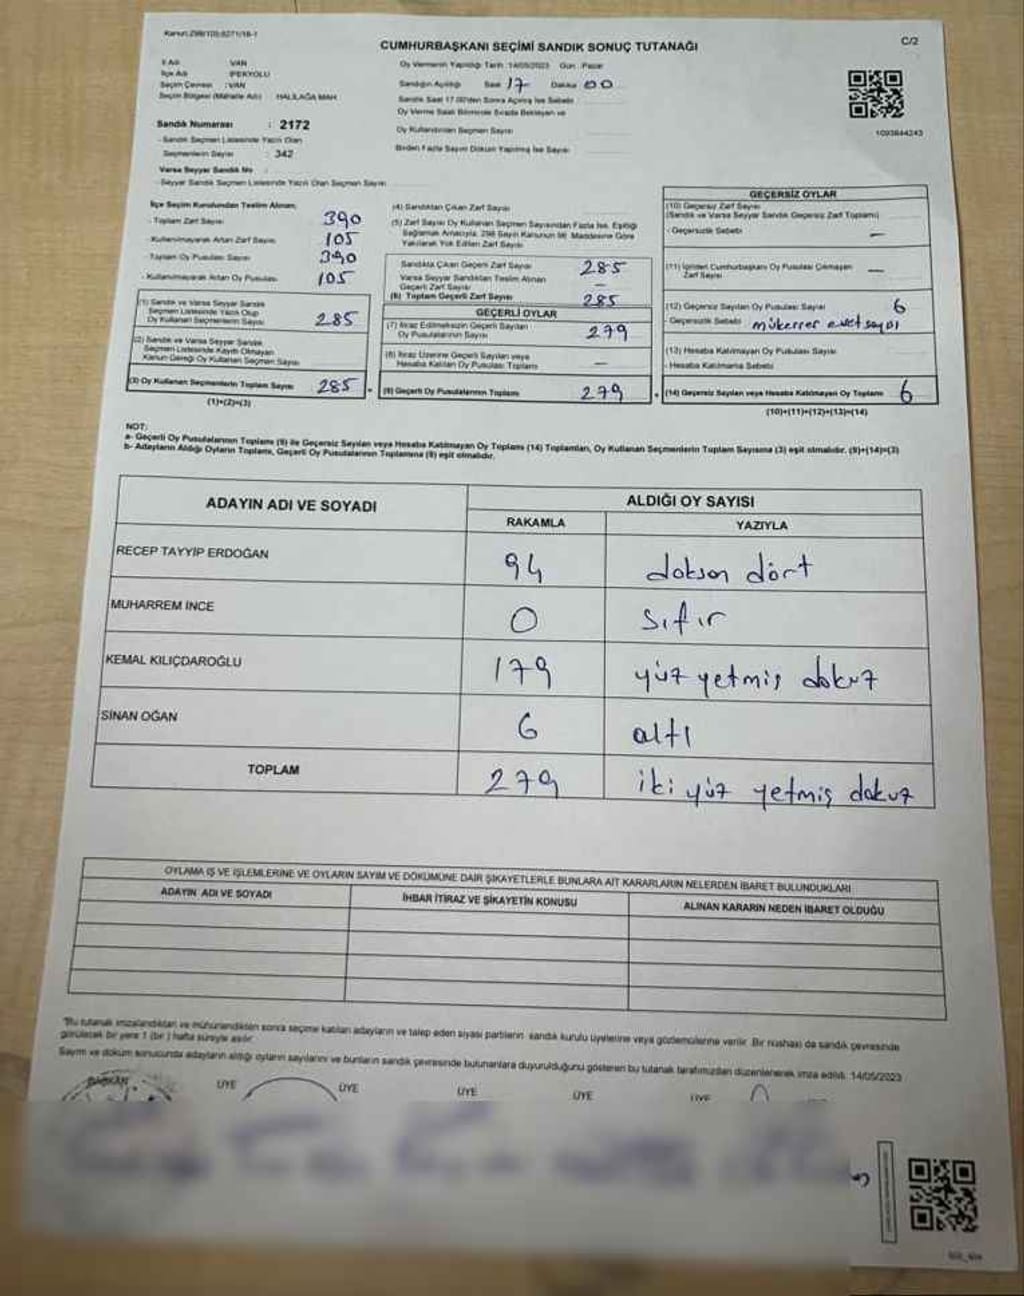 Kanun:298/105;6271/18-1
CUMHURBAŞKANI SEÇİMİ SANDIK SONUÇ TUTANAĞI
C/2
İl Adı : VAN
İlçe Adı : İPEKYOLU
Seçim Çevresi : VAN
Seçim Bölgesi (Mahalle Adı) HALİLAĞA MAH
Sandık Numarası : 2172
- Sandık Seçmen Listesinde Yazılı Olan
Seçmenlerin Sayısı : 342
Varsa Seyyar Sandık No :
- Seyyar Sandık Seçmen Listesinde Yazılı Olan Seçmen Sayısı
Oy Vermenin Yapıldığı Tarih :14/05/2023 Gün : Pazar
Sandığın Açıldığı Saat 17 Dakika 00
Sandık Saat 17.00'den Sonra Açılmış İse Sebebi
Oy Verme Saati Bitiminde Sırada Bekleyen ve
Oy Kullandırılan Seçmen Sayısı
Birden Fazla Sayım Döküm Yapılmış İse Sayısı
1093844243
İlçe Seçim Kurulundan Teslim Alınan;
- Toplam Zarf Sayısı 390
- Kullanılmayarak Artan Zarf Sayısı 105
- Toplam Oy Pusulası Sayısı 390
- Kullanılmayarak Artan Oy Pusulası 105
(1) Sandık ve Varsa Seyyar Sandık
Seçmen Listesinde Yazılı Olup
Oy Kullanan Seçmenlerin Sayısı 285
(2) Sandık ve Varsa Seyyar Sandık
Seçmen Listesinde Kayıtlı Olmayan
Kanun Gereği Oy Kullanan Seçmen Sayısı
(3) Oy Kullanan Seçmenlerin Toplam Sayısı 285 =
(1)+(2)=(3)
(4) Sandıktan Çıkan Zarf Sayısı
(5) Zarf Sayısı Oy Kullanan Seçmen Sayısından Fazla İse, Eşitliği
Sağlamak Amacıyla, 298 Sayılı Kanunun 98. Maddesine Göre
Yakılarak Yok Edilen Zarf Sayısı
Sandıkta Çıkan Geçerli Zarf Sayısı 285
Varsa Seyyar Sandıktan Teslim Alınan
Geçerli Zarf Sayısı —
(6) Toplam Geçerli Zarf Sayısı 285
GEÇERLİ OYLAR
(7) İtiraz Edilmeksizin Geçerli Sayılan
Oy Pusulalarının Sayısı 279
(8) İtiraz Üzerine Geçerli Sayılan veya
Hesaba Katılan Oy Pusulası Toplamı —
(9) Geçerli Oy Pusulalarının Toplamı 279 +
GEÇERSİZ OYLAR
(10) Geçersiz Zarf Sayısı
(Sandık ve Varsa Seyyar Sandık Geçersiz Zarf Toplamı)
- Geçersizlik Sebebi —
(11) İçinden Cumhurbaşkanı Oy Pusulası Çıkmayan
Zarf Sayısı —
(12) Geçersiz Sayılan Oy Pusulası Sayısı 6
- Geçersizlik Sebebi mükerrer evet sayısı
(13) Hesaba Katılmayan Oy Pusulası Sayısı
- Hesaba Katılmama Sebebi
(14) Geçersiz Sayılan veya Hesaba Katılmayan Oy Toplamı 6
(10)+(11)+(12)+(13)=(14)
NOT:
a- Geçerli Oy Pusulalarının Toplamı (9) ile Geçersiz Sayılan veya Hesaba Katılmayan Oy Toplamı (14) Toplamları, Oy Kullanan Seçmenlerin Toplam Sayısına (3) eşit olmalıdır. (9)+(14)=(3)
b- Adayların Aldığı Oyların Toplamı, Geçerli Oy Pusulalarının Toplamına (9) eşit olmalıdır.
ADAYIN ADI VE SOYADI
ALDIĞI OY SAYISI
RAKAMLA YAZIYLA
RECEP TAYYİP ERDOĞAN 94 doksan dört
MUHARREM İNCE 0 sıfır
KEMAL KILIÇDAROĞLU 179 yüz yetmiş dokuz
SİNAN OĞAN 6 altı
TOPLAM 279 iki yüz yetmiş dokuz
OYLAMA İŞ VE İŞLEMLERİNE VE OYLARIN SAYIM VE DÖKÜMÜNE DAİR ŞİKAYETLERLE BUNLARA AİT KARARLARIN NELERDEN İBARET BULUNDUKLARI
ADAYIN ADI VE SOYADI İHBAR İTİRAZ VE ŞİKAYETİN KONUSU ALINAN KARARIN NEDEN İBARET OLDUĞU
"Bu tutanak imzalandıktan ve mühürlendikten sonra seçime katılan adayların ve talep eden siyasi partilerin sandık kurulu üyelerine veya gözlemcilerine verilir. Bir nüshası da sandık çevresinde
görülecek bir yere 1 (bir ) hafta süreyle asılır.
Sayım ve döküm sonucunda adayların aldığı oyların sayılarını ve bunların sandık çevresinde bulunanlara duyurulduğunu gösteren bu tutanak tarafımızdan düzenlenerek imza edildi. 14/05/2023
BAŞKAN ÜYE ÜYE ÜYE ÜYE ÜYE